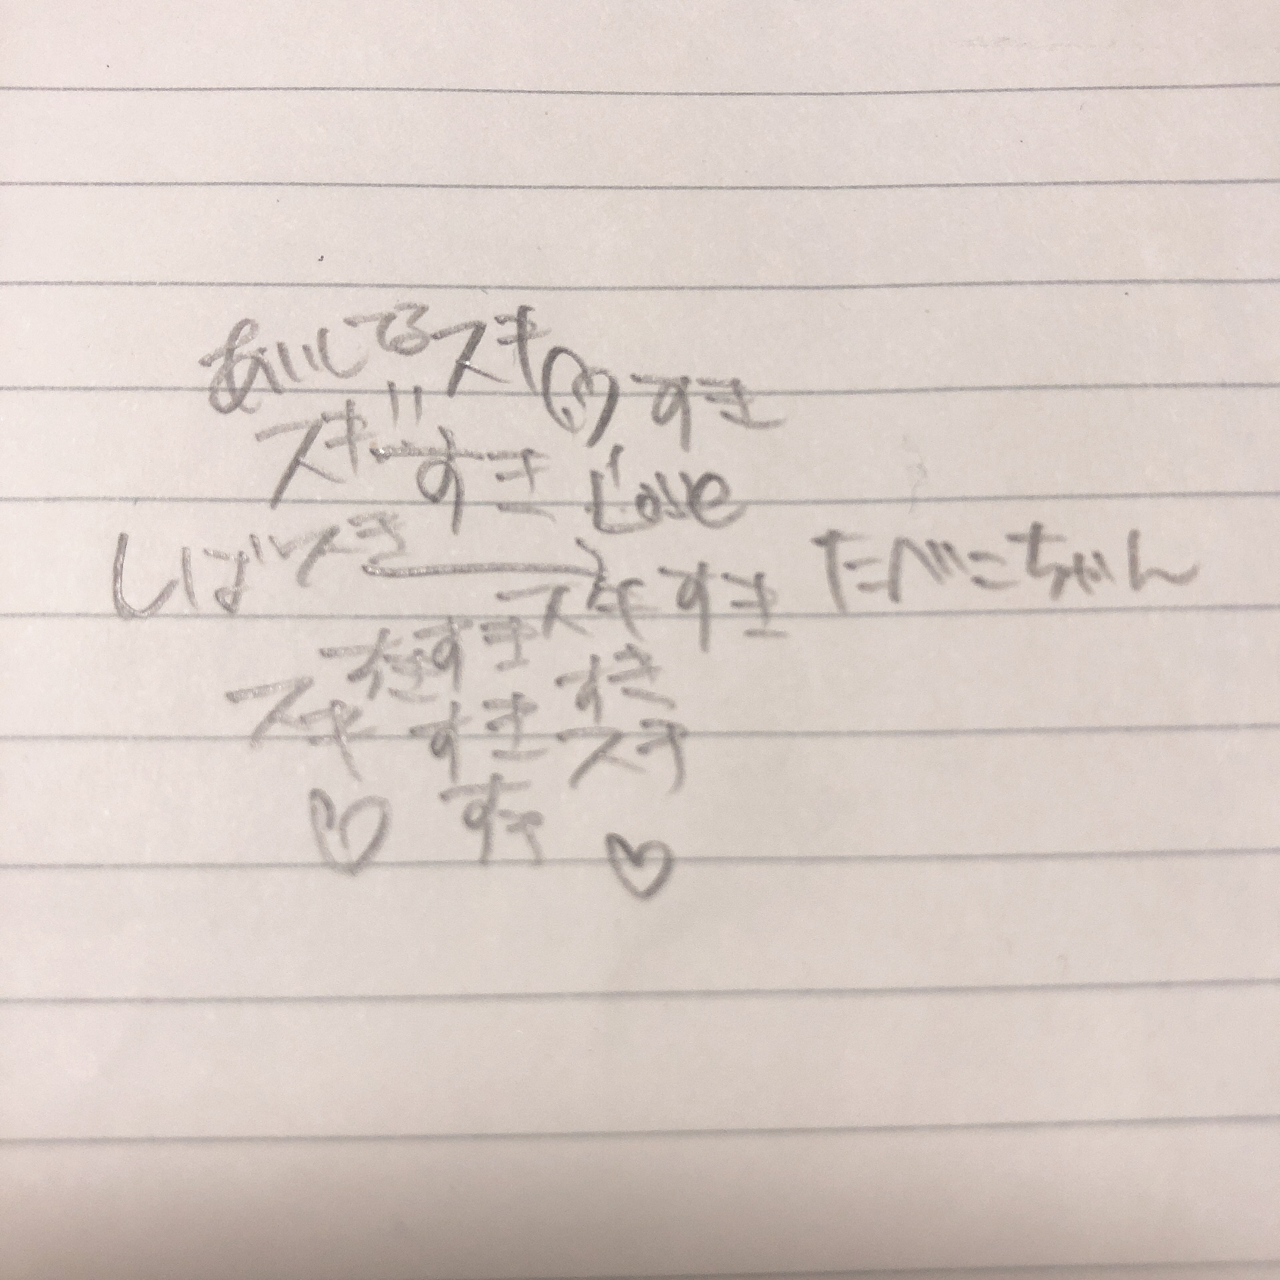 あいしてるスキ♡すき
スキ!!すき Love
しばスき→スキすき たべこちゃん
すきすき すき
スキ すき スキ
♡ すき ♡